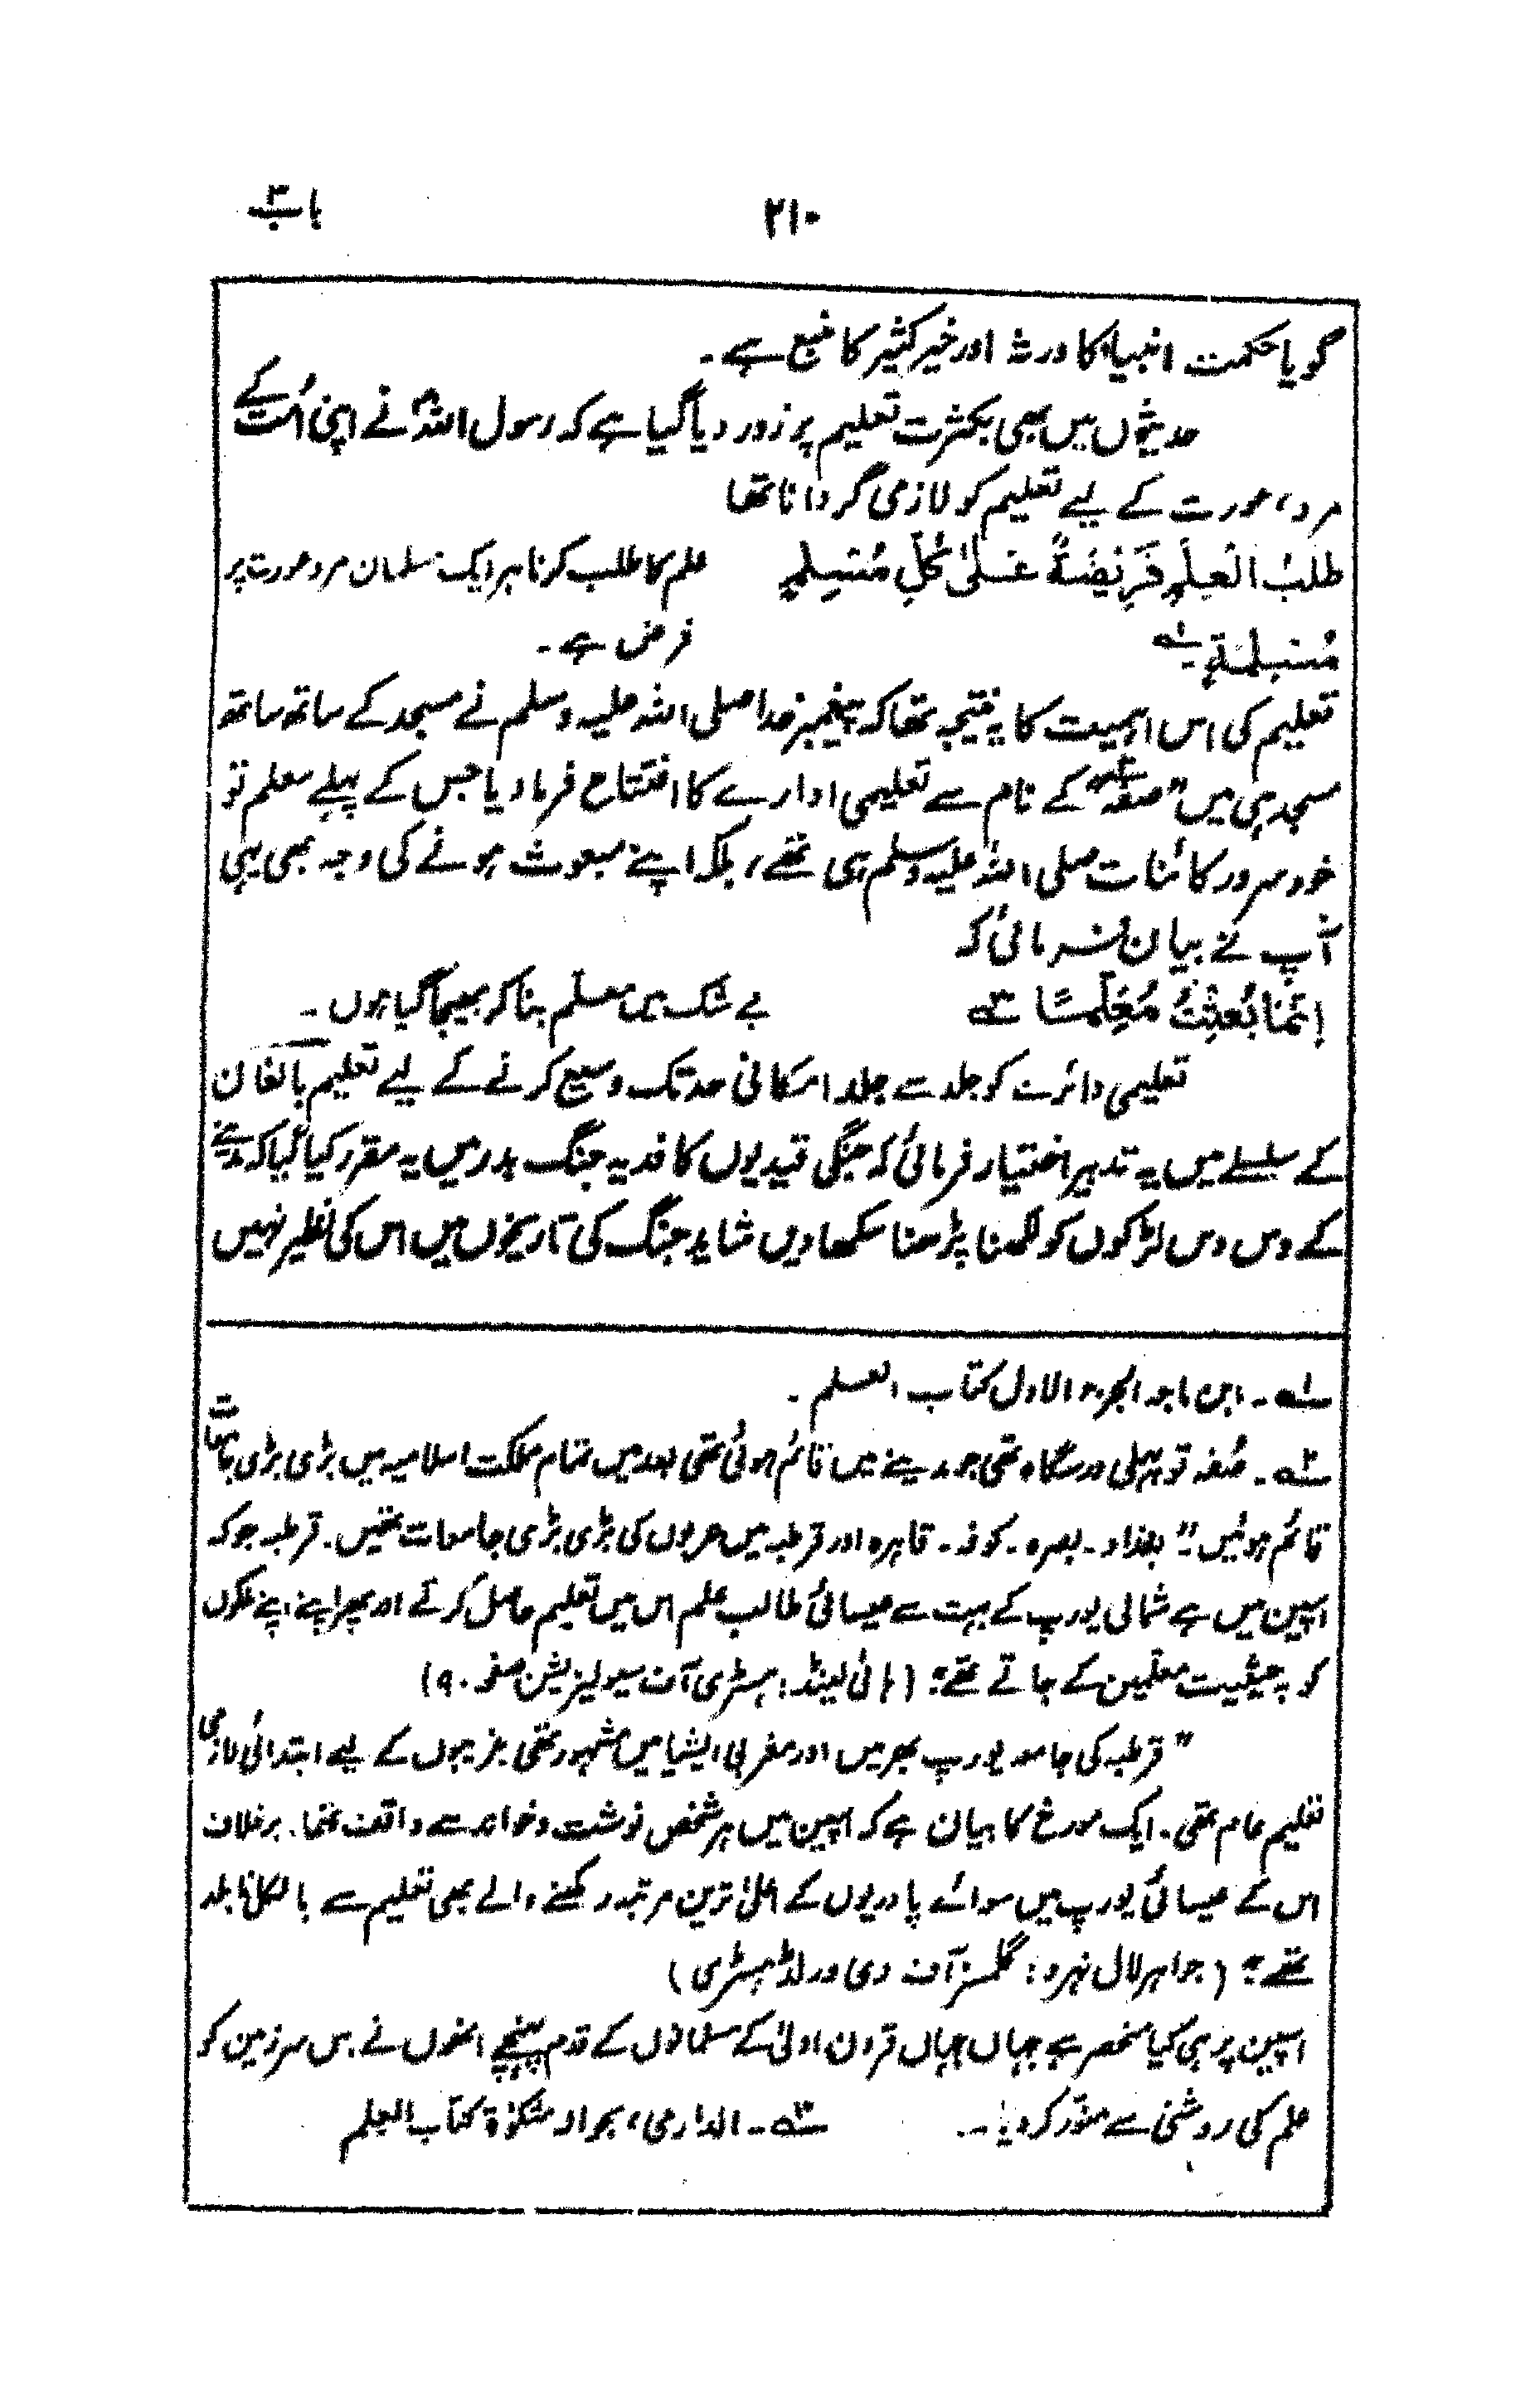 باب ۳
۲۱۰
گویا حکمت انبیاء کا ورثہ اور خیر کثیر کا منبع ہے۔
حدیثوں میں بھی بکثرت تعلیم پر زور دیا گیا ہے کہ رسول اللہؐ نے اپنی اُمت کے
مرد، عورت کے لیے تعلیم کو لازمی گردانا تھا
طَلَبُ الْعِلْمِ فَرِیْضَۃٌ عَلٰی کُلِّ مُسْلِمٍ علم کا طلب کرنا ہر ایک مسلمان مرد عورت پر
مُسْلِمَۃٍ ۱؎ فرض ہے۔
تعلیم کی اس اہمیت کا یہ نتیجہ تھا کہ پیغمبر خدا صلی اللہ علیہ وسلم نے مسجد کے ساتھ ساتھ
مسجد ہی میں "صفہ ۲؎" کے نام سے تعلیمی ادارے کا افتتاح فرما دیا جس کے پہلے معلم تو
خود سرور کائنات صلی اللہ علیہ وسلم ہی تھے، بلکہ اپنے مبعوث ہونے کی وجہ بھی یہی
آپ نے بیان فرمائی کہ
اِنَّمَا بُعِثْتُ مُعَلِّمًا ۳؎ بے شک میں معلم بنا کر بھیجا گیا ہوں۔
تعلیمی دائرے کو جلد سے جلد امکانی حد تک وسیع کرنے کے لیے تعلیم بالغان
کے سلسلے میں یہ تدبیر اختیار فرمائی کہ جنگی قیدیوں کا فدیہ جنگ بدر میں یہ مقرر کیا گیا کہ مدینے
کے دس دس لڑکوں کو لکھنا پڑھنا سکھا دیں شاید جنگ کی تاریخوں میں اس کی نظیر نہیں
۱؎۔ ابن ماجہ الجزء الاول کتاب العلم۔
۲؎۔ صُفہ تو پہلی درسگاہ تھی جو مدینے میں قائم ہوئی تھی بعد میں تمام مملکت اسلامیہ میں بڑی بڑی جامعات
قائم ہوئیں "بغداد۔ بصرہ۔ کوفہ۔ قاہرہ اور قرطبہ میں عربوں کی بڑی بڑی جامعات تھیں۔ قرطبہ جو کہ
اسپین میں ہے شمالی یورپ کے بہت سے عیسائی طالب علم اس میں تعلیم حاصل کرتے اور پھر اپنے اپنے ملکوں
کو بہ حیثیت معلمین کے جاتے تھے" (ہائی لینڈ: ہسٹری آف سیولیزیشن صفحہ ۹۰)
"قرطبہ کی جامعہ یورپ بھر میں اور مغربی ایشیا میں مشہور تھی غریبوں کے لیے ابتدائی لازمی
تعلیم عام تھی۔ ایک مورخ کا بیان ہے کہ اسپین میں ہر شخص نوشت و خواند سے واقف تھا۔ برخلاف
اس کے عیسائی یورپ میں سوائے پادریوں کے اعلیٰ ترین مرتبہ رکھنے والے بھی تعلیم سے بالکل نابلد
تھے" (جواہر لال نہرو: گلمسز آف دی ورلڈ ہسٹری)
اسپین پر ہی کیا منحصر ہے جہاں جہاں قرون اولیٰ کے مسلمانوں کے قدم پہنچے انھوں نے اس سرزمین کو
علم کی روشنی سے منور کر دیا۔ ۳؎۔ الدارمی، بحوالہ مشکوٰۃ کتاب العلم